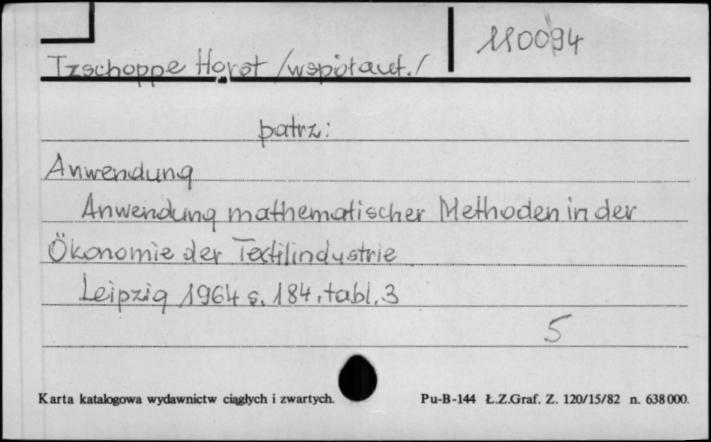 110094
Tzschoppe Horst /współaut./
patrz:
Anwendung
Anwendung mathematischer Methoden in der
Ökonomie der Textilindustrie
Leipzig 1964 s. 184, tabl. 3
5
Karta katalogowa wydawnictw ciągłych i zwartych. Pu-B-144 Ł.Z.Graf. Z. 120/15/82 n. 638000.